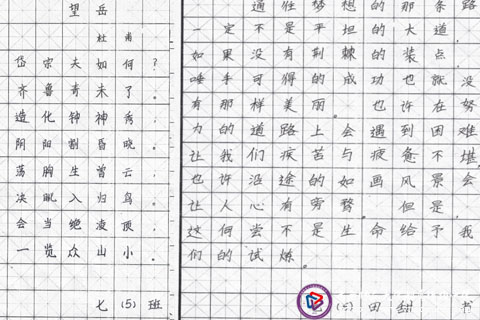 望岳
杜甫
岱宗夫如何？
齐鲁青未了。
造化钟神秀，
阴阳割昏晓。
荡胸生曾云，
决眦入归鸟。
会当绝凌顶，
一览众山小。
七（5）班
通往梦想的那条路
一定不是平坦的大道，
如果没有荆棘的装点，
唾手可得的成功也就没
有那样美丽。也许在努
力的道路上会遇到困难
让我们疾苦与疲惫不堪，
也许沿途的如画风景会
让人心有旁骛。但是，
这何尝不是生命给予我
们的试炼。
（5）田甜 书